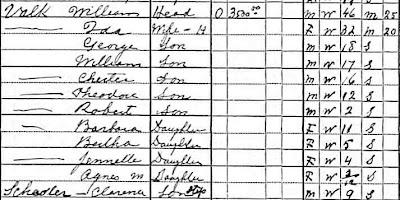 Valk William Head O 3500 00 M W 46 M 25
— Ida Wife-H F W 32 M 20
George Son M W 18 S
William Son M W 17 S
— Chester Son M W 16 S
— Theodore Son M W 12 S
— Robert Son M W 2 S
— Barbara Daughter F W 11 S
Bertha Daughter F W 5 S
— Jennelle Daughter F W 4 S
Agnes M Daughter F W S
Schadler — Clarence Son M W 9 S